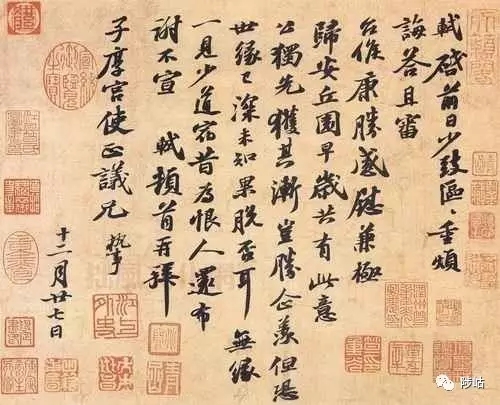 軾啓前日少致區〻重煩
誨荅且審
台候康勝感慰兼極
歸安丘園早歲共有此意
公獨先獲其漸豈勝企羨但恐
世緣已深未知果脫否耳 無緣
一見少道宿昔為恨人還布
謝不宣 軾頓首再拜
子厚宮使正議兄 執事
十二月廿七日
陟岵